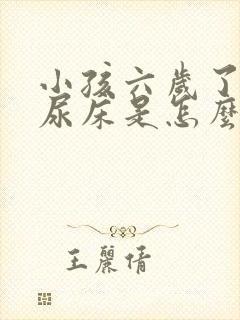 小孩六歲了
尿床是怎麼
王麗倩